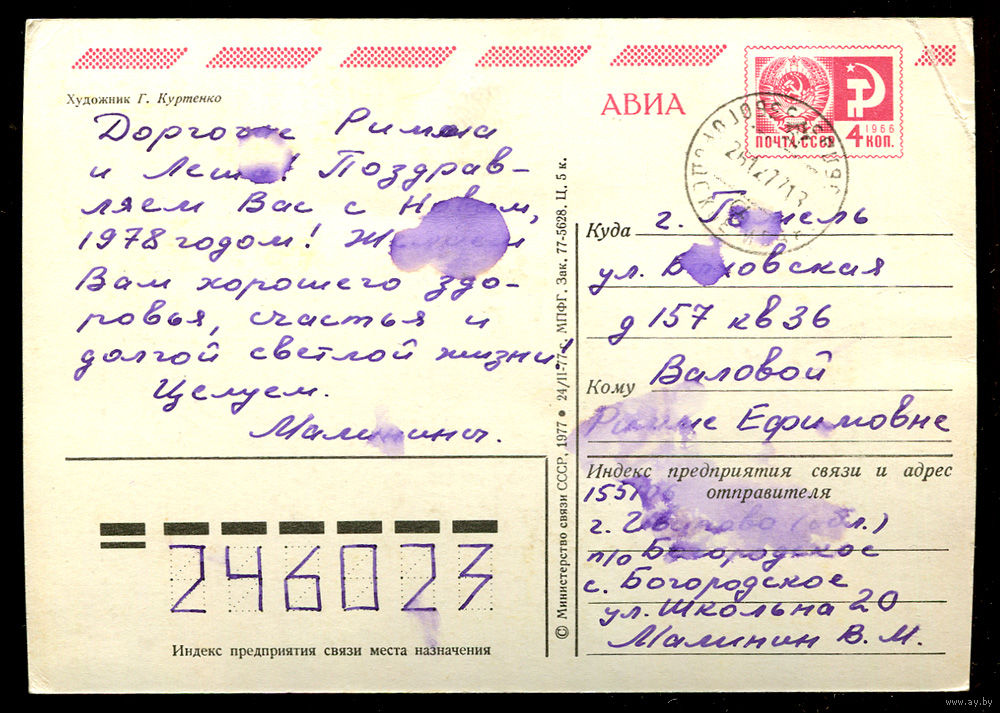 Художник Г. Куртенко
АВИА
ПОЧТА СССР 4 1966 КОП.
Дорогие Римма
и Леша! Поздрав-
ляем Вас с Новым,
1978 годом! Желаем
Вам хорошего здо-
ровья, счастья и
долгой светлой жизни!
Целуем.
Малинины.
246023
Индекс предприятия связи места назначения
© Министерство связи СССР, 1977 • 24/II-77 г. МПФГ. Зак. 77-5628. Ц. 5 к.
Куда г. Гомель
ул. Быховская
д 157 кв 36
Кому Валовой
Римме Ефимовне
Индекс предприятия связи и адрес
отправителя
г. Иваново (обл.)
п/о Богородское
с. Богородское
ул. Школьна 20
Малинин В. М.
www.ay.by